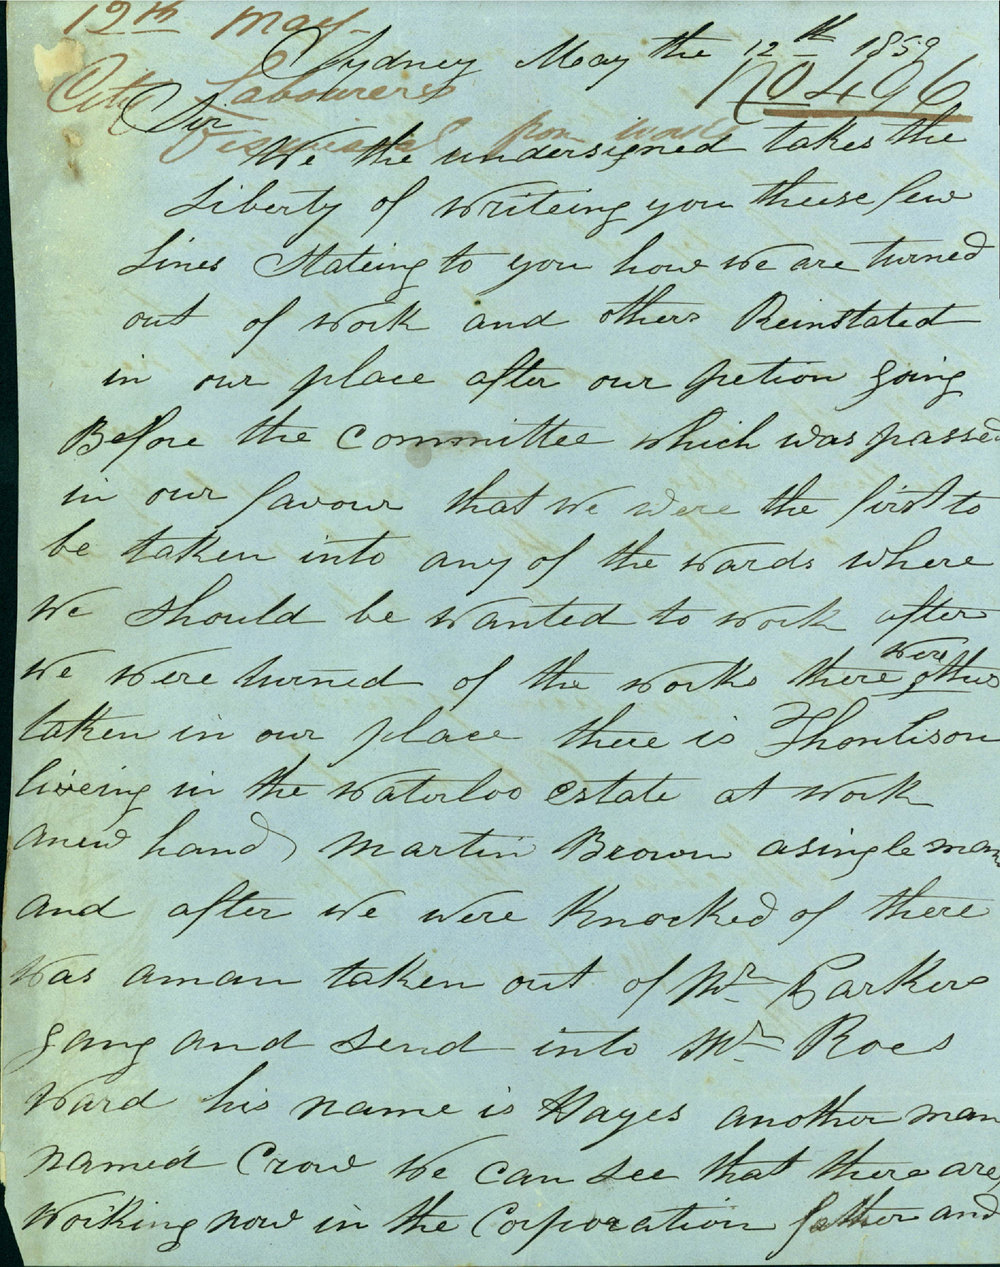 12th May
Sydney May the 12th 1859
No 496
City Labourers
Sir
Dismissal from work
We the undersigned takes the
Liberty of writeing you theese few
Lines Stateing to you how we are turned
out of work and others Reinstated
in our place after our petion going
Before the Committee which was passed
in our favour that we were the first to
be taken into any of the wards where
we should be wanted to work after
we were turned of the works there were others
taken in our place there is Thomlison
liveing in the Waterloo estate at work
anew hand Martin Brown asingle man
and after we were Knocked of there
was aman taken out of Mr Parkers
gang and send into Mr Roes
Ward his name is Hayes another man
named Crow we can see that there are
working now in the Corporation father and